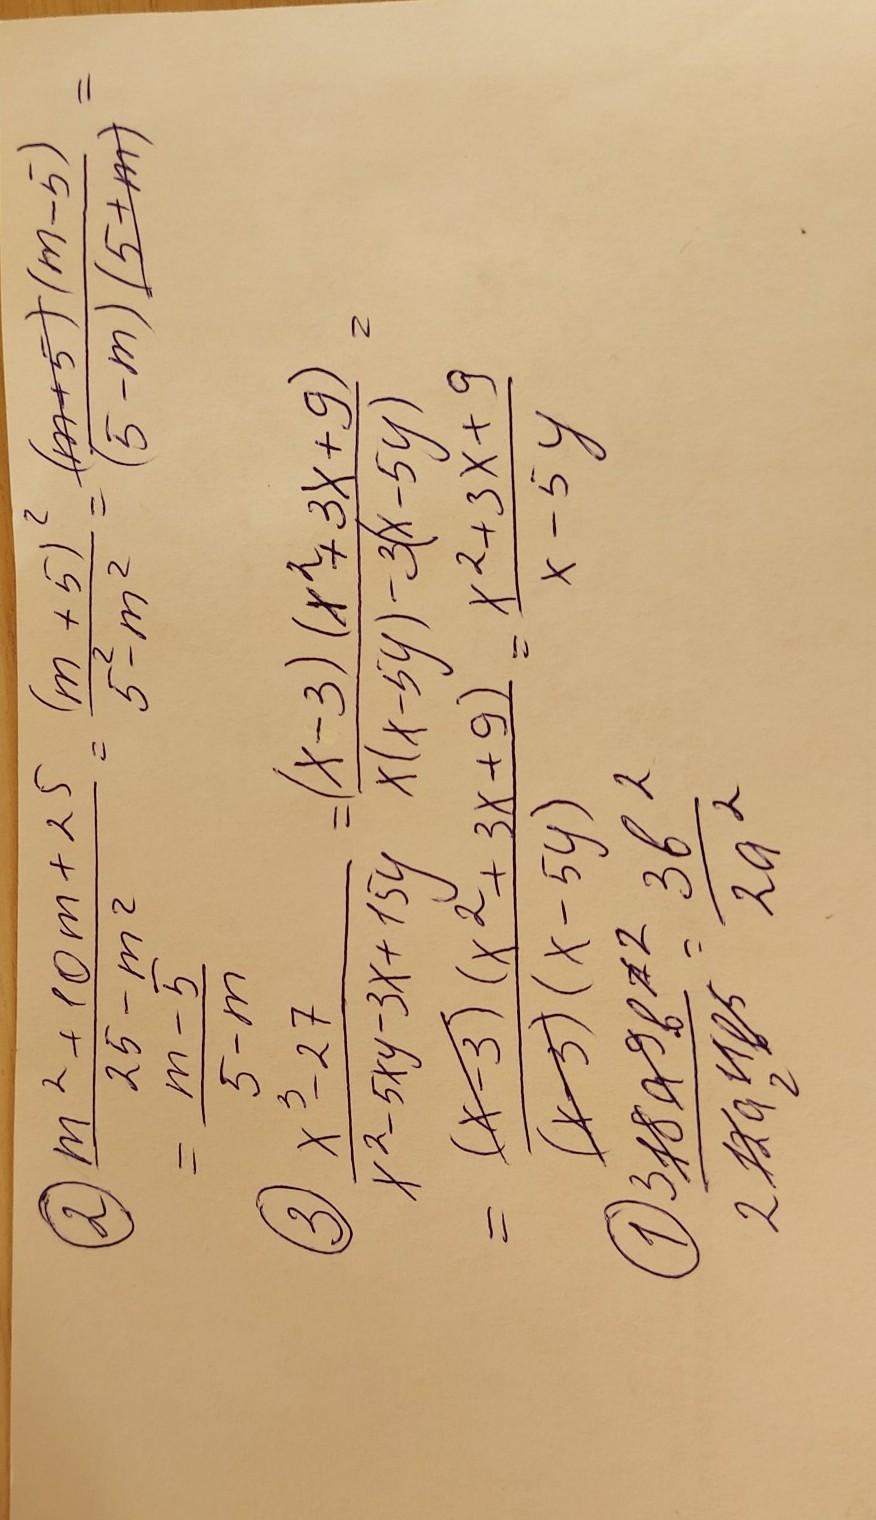 ② (m² + 10m + 25)/(25 - m²) = (m + 5)²/(5² - m²) = (m+5)(m-5)/((5-m)(5+m)) =
= (m - 5)/(5 - m)
③ (x³ - 27)/(x² - 5xy - 3x + 15y) = (x-3)(x² + 3x + 9)/(x(x-5y) - 3(x-5y)) =
= (x-3)(x² + 3x + 9)/((x-3)(x - 5y)) = (x² + 3x + 9)/(x - 5y)
① = 3b²/2a²